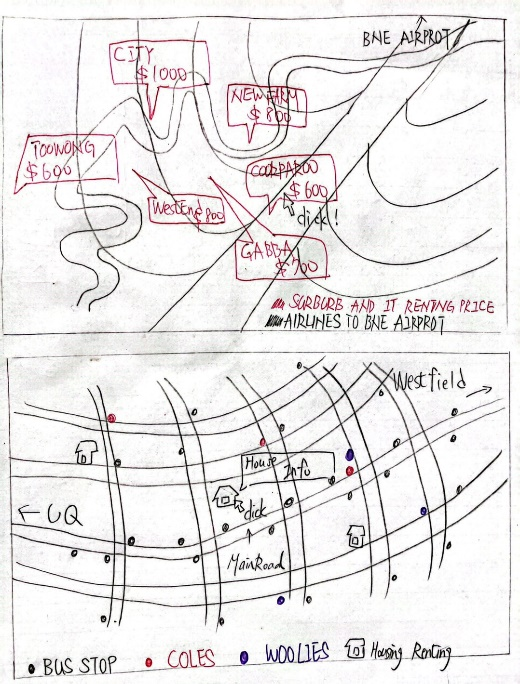 BNE AIRPROT
CITY
$1000
NEW FARM
$800
TOOWONG
$600
COORPAROO
$600
WestEnd $800
click!
GABBA
$700
SURBURB AND IT RENTING PRICE
AIRLINES TO BNE AIRPROT
Westfield →
House
Info
← UQ
click
Main Road
BUS STOP COLES WOOLIES Housing Renting